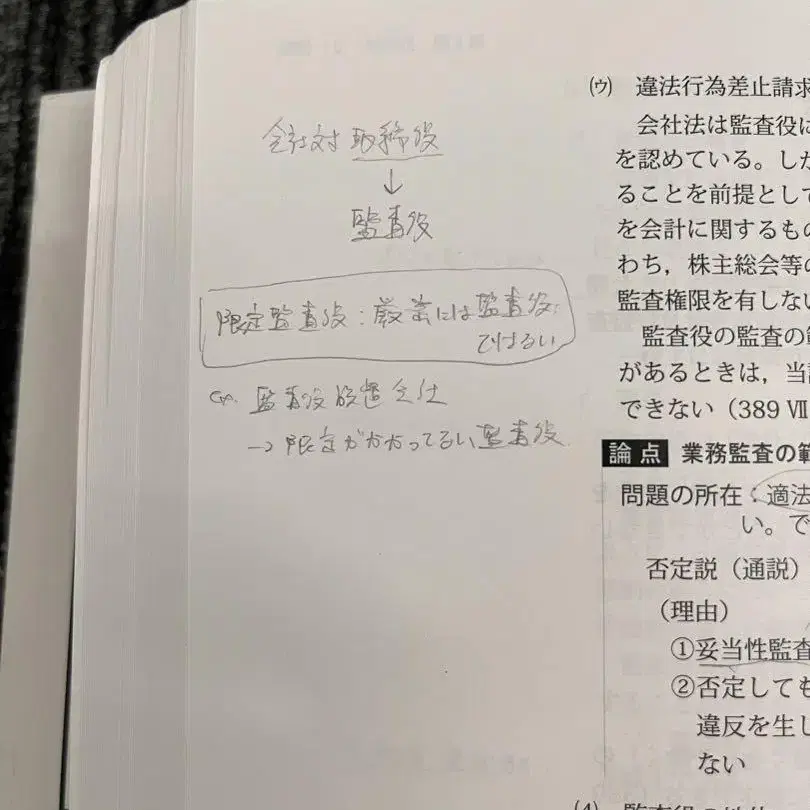 会社対取締役
↓
監査役
限定監査役：厳密には監査役
ではない
ex. 監査役設置会社
→限定がかかってない監査役
(ウ) 違法行為差止請求
会社法は監査役に
を認めている。しか
ることを前提として
を会計に関するもの
わち，株主総会等の
監査権限を有しない
監査役の監査の範
があるときは，当
できない（389 Ⅶ
論点 業務監査の範
問題の所在：適法
い。で
否定説（通説）
（理由）
①妥当性監査
②否定しても
違反を生じ
ない